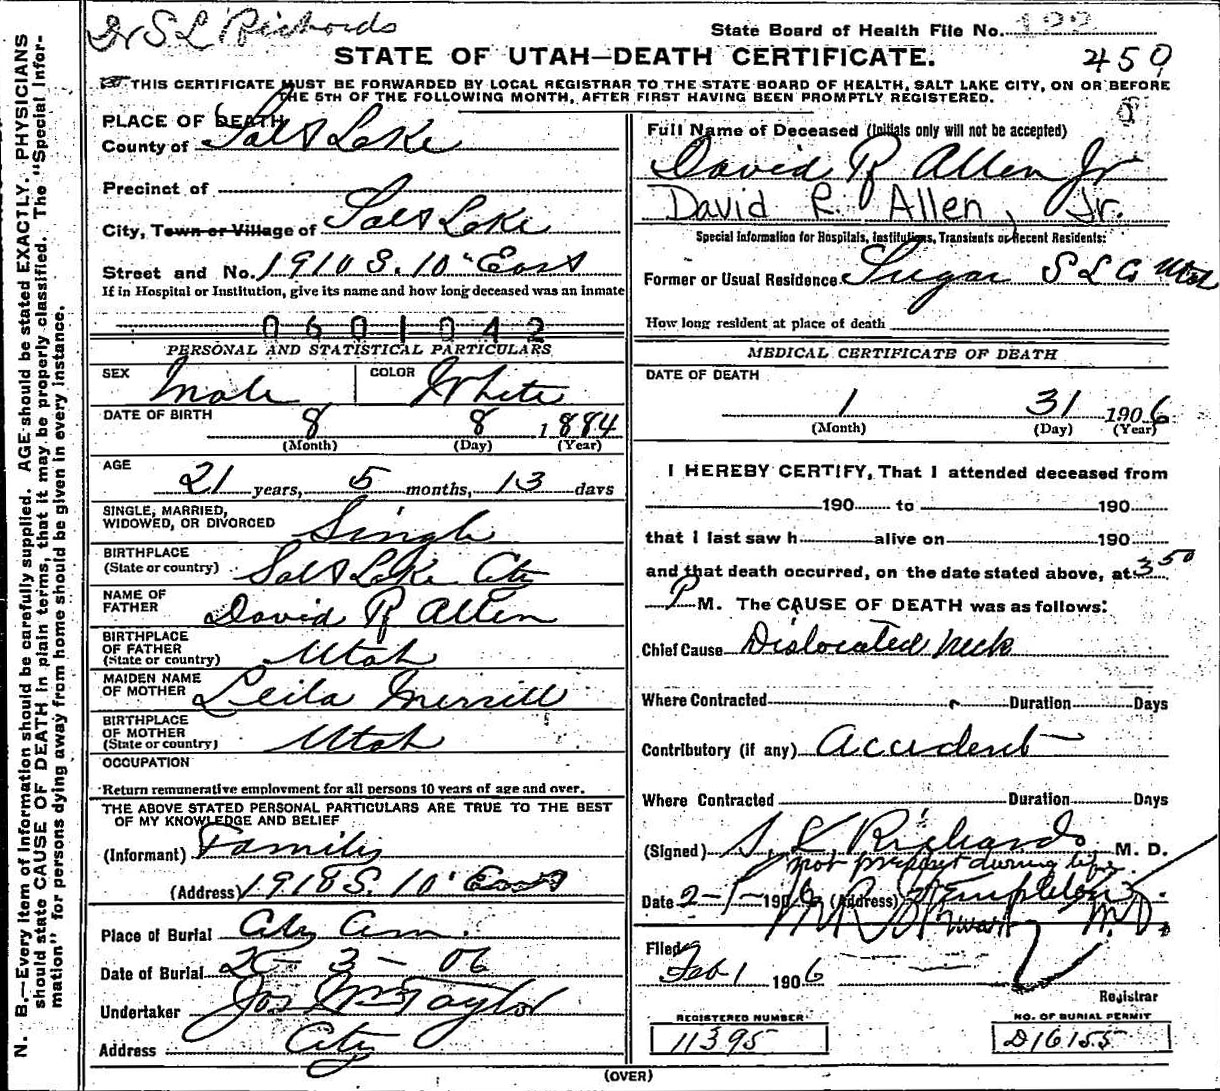 Dr S L Richards
State Board of Health File No.
STATE OF UTAH—DEATH CERTIFICATE.
450
THIS CERTIFICATE MUST BE FORWARDED BY LOCAL REGISTRAR TO THE STATE BOARD OF HEALTH, SALT LAKE CITY, ON OR BEFORE
THE 5TH OF THE FOLLOWING MONTH, AFTER FIRST HAVING BEEN PROMPTLY REGISTERED.
N. B.—Every item of information should be carefully supplied. AGE should be stated EXACTLY. PHYSICIANS
should state CAUSE OF DEATH in plain terms, that it may be properly classified. The "Special Infor-
mation" for persons dying away from home should be given in every instance.
PLACE OF DEATH
County of Salt Lake
Precinct of
City, Town or Village of Salt Lake
Street and No. 1910 S. 10" East
If in Hospital or Institution, give its name and how long deceased was an inmate
0601042
PERSONAL AND STATISTICAL PARTICULARS
SEX Male COLOR White
DATE OF BIRTH 8 8 1884
(Month) (Day) (Year)
AGE
21 years, 5 months, 13 days
SINGLE, MARRIED,
WIDOWED, OR DIVORCED Single
BIRTHPLACE
(State or country) Salt Lake City
NAME OF
FATHER David R Allen
BIRTHPLACE
OF FATHER
(State or country) Utah
MAIDEN NAME
OF MOTHER Leila Merrill
BIRTHPLACE
OF MOTHER
(State or country) Utah
OCCUPATION
Return remunerative employment for all persons 10 years of age and over.
THE ABOVE STATED PERSONAL PARTICULARS ARE TRUE TO THE BEST
OF MY KNOWLEDGE AND BELIEF
(Informant) Family
(Address) 1918 S. 10" East
Place of Burial City Cem.
Date of Burial 2 – 3 – 06
Undertaker Jos Wm Taylor
Address City
Full Name of Deceased (Initials only will not be accepted)
David R Allen Jr
David R. Allen, Jr.
Special Information for Hospitals, Institutions, Transients or Recent Residents:
Former or Usual Residence Sugar S L Co Utah
How long resident at place of death
MEDICAL CERTIFICATE OF DEATH
DATE OF DEATH
1 31 1906
(Month) (Day) (Year)
I HEREBY CERTIFY, That I attended deceased from
190 to 190
that I last saw h alive on 190
and that death occurred, on the date stated above, at 3 50
P M. The CAUSE OF DEATH was as follows:
Chief Cause Dislocated neck
Where Contracted Duration Days
Contributory (if any) Accident
Where Contracted Duration Days
(Signed) S. L. Richards M. D.
not present during life
Date 2-1-1906 (Address) Templeton
M R Stewart M.D.
Filed
Feb 1 1906
Registrar
REGISTERED NUMBER
11395
NO. OF BURIAL PERMIT
D16155
(OVER)